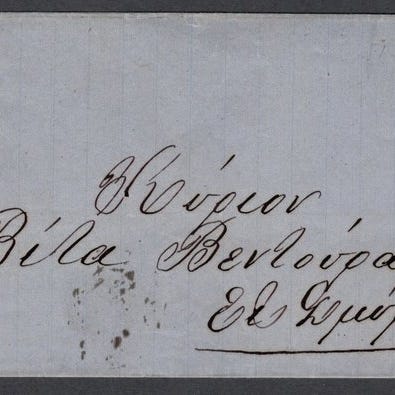 Κύριον
Βίτα Βεντούρα
Εἰς Σμύρ